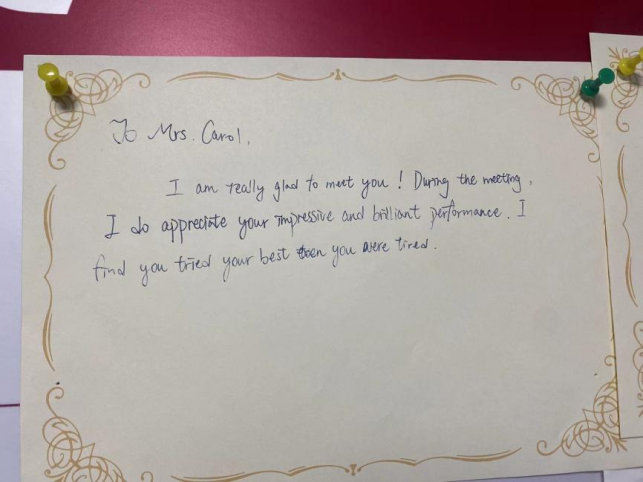 To Mrs. Carol,
I am really glad to meet you! During the meeting,
I do appreciate your impressive and brilliant performance. I
find you tried your best when you were tired.